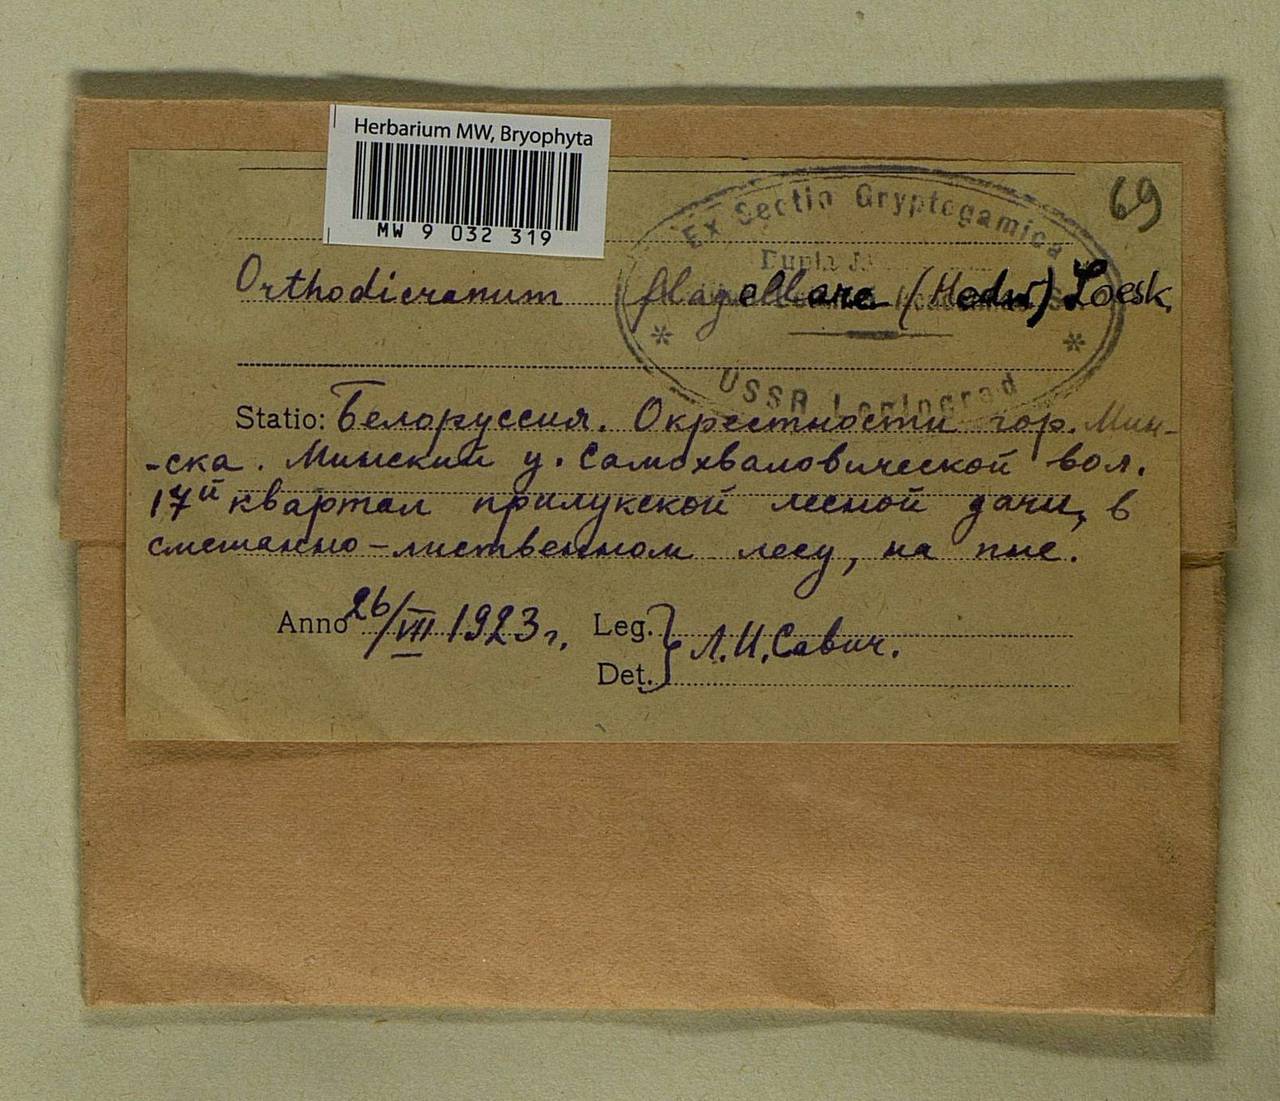 Herbarium MW, Bryophyta
MW 9 032 319
69
Ex Sectio Gryptogamica
USSR Leningrad
Orthodicranum flagellare (Hedw) Loesk.
Statio: Белоруссия. Окрестности гор. Мин-
-ска. Минский у. Самохваловической вол.
17й квартал прилукской лесной дачи, в
смешанно-лиственном лесу, на пне.
Anno 26/VII 1923 г. Leg.
Det. Л.И.Савич.